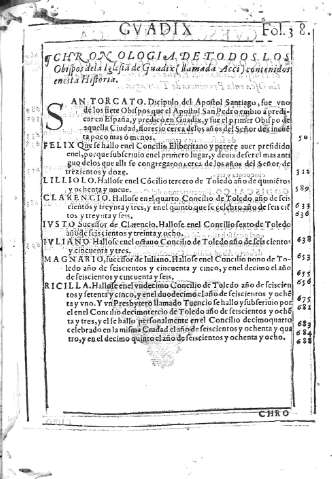 GVADIX
Fol. 38.
¶CHRONOLOGIA DE TODOS LOS
Obispos de la Iglesia de Guadix (llamada Acci) contenidos
en esta Historia.
SAN TORCATO. Discipulo del Apostol Santiago, fue vno
de los siete Obispos que el Apostol San Pedro embio a predi-
car en España, y predicò en Guadix, y fue el primer Obispo de
aquella Ciudad, florecio cerca de los años del Señor de cincuē
ta poco mas ò menos. 50.
FELIX Que se hallo en el Concilio Eliberitano y parece auer presidido
en el, porque subscriuio en el primero lugar, y deuia de ser el mas anti
guo de los que alli se congregaron cerca de los años del Señor de
trezientos y doze. 312
LILLIOLO. Hallose en el Cōcilio tercero de Toledo año de quiniētos
y ochenta y nueue. 589.
CLARENCIO. Hallose en el quarto Concilio de Toledo año de seis
cientos y treynta y tres, y en el quinto que se celebro año de seiscie
tos y treynta y seis. 633
636
IVSTO Sucessor de Clarencio, Hallose en el Concilio sexto de Toledo
año de seiscientos y treinta y ocho. 638
IVLIANO. Hallose en el octauo Concilio de Toledo año de seiscientos
y cincuenta y tres. 653
MAGNARIO, sucessor de Iuliano. Hallose en el Concilio nono de To-
ledo año de seiscientos y cincuenta y cinco, y en el decimo el año
de seiscientos y cincuenta y seis. 655
656.
RICILLA. Hallose en el vndecimo Concilio de Toledo año de seiscien
tos y setenta y cinco, y en el duodecimo el año de seiscientos y ochē
ta y vno. Y vn Presbytero llamado Tuencio se hallo y subscriuio por
el en el Concilio decimotercio de Toledo año de seiscientos y ochē
ta y tres, y el se hallo personalmente en el Concilio decimoquarto
celebrado en la misma Ciudad el año de seiscientos y ochenta y qua
tro, y en el decimo quinto el año de seiscientos y ochenta y ocho. 675
681
683
684
688
CHRO